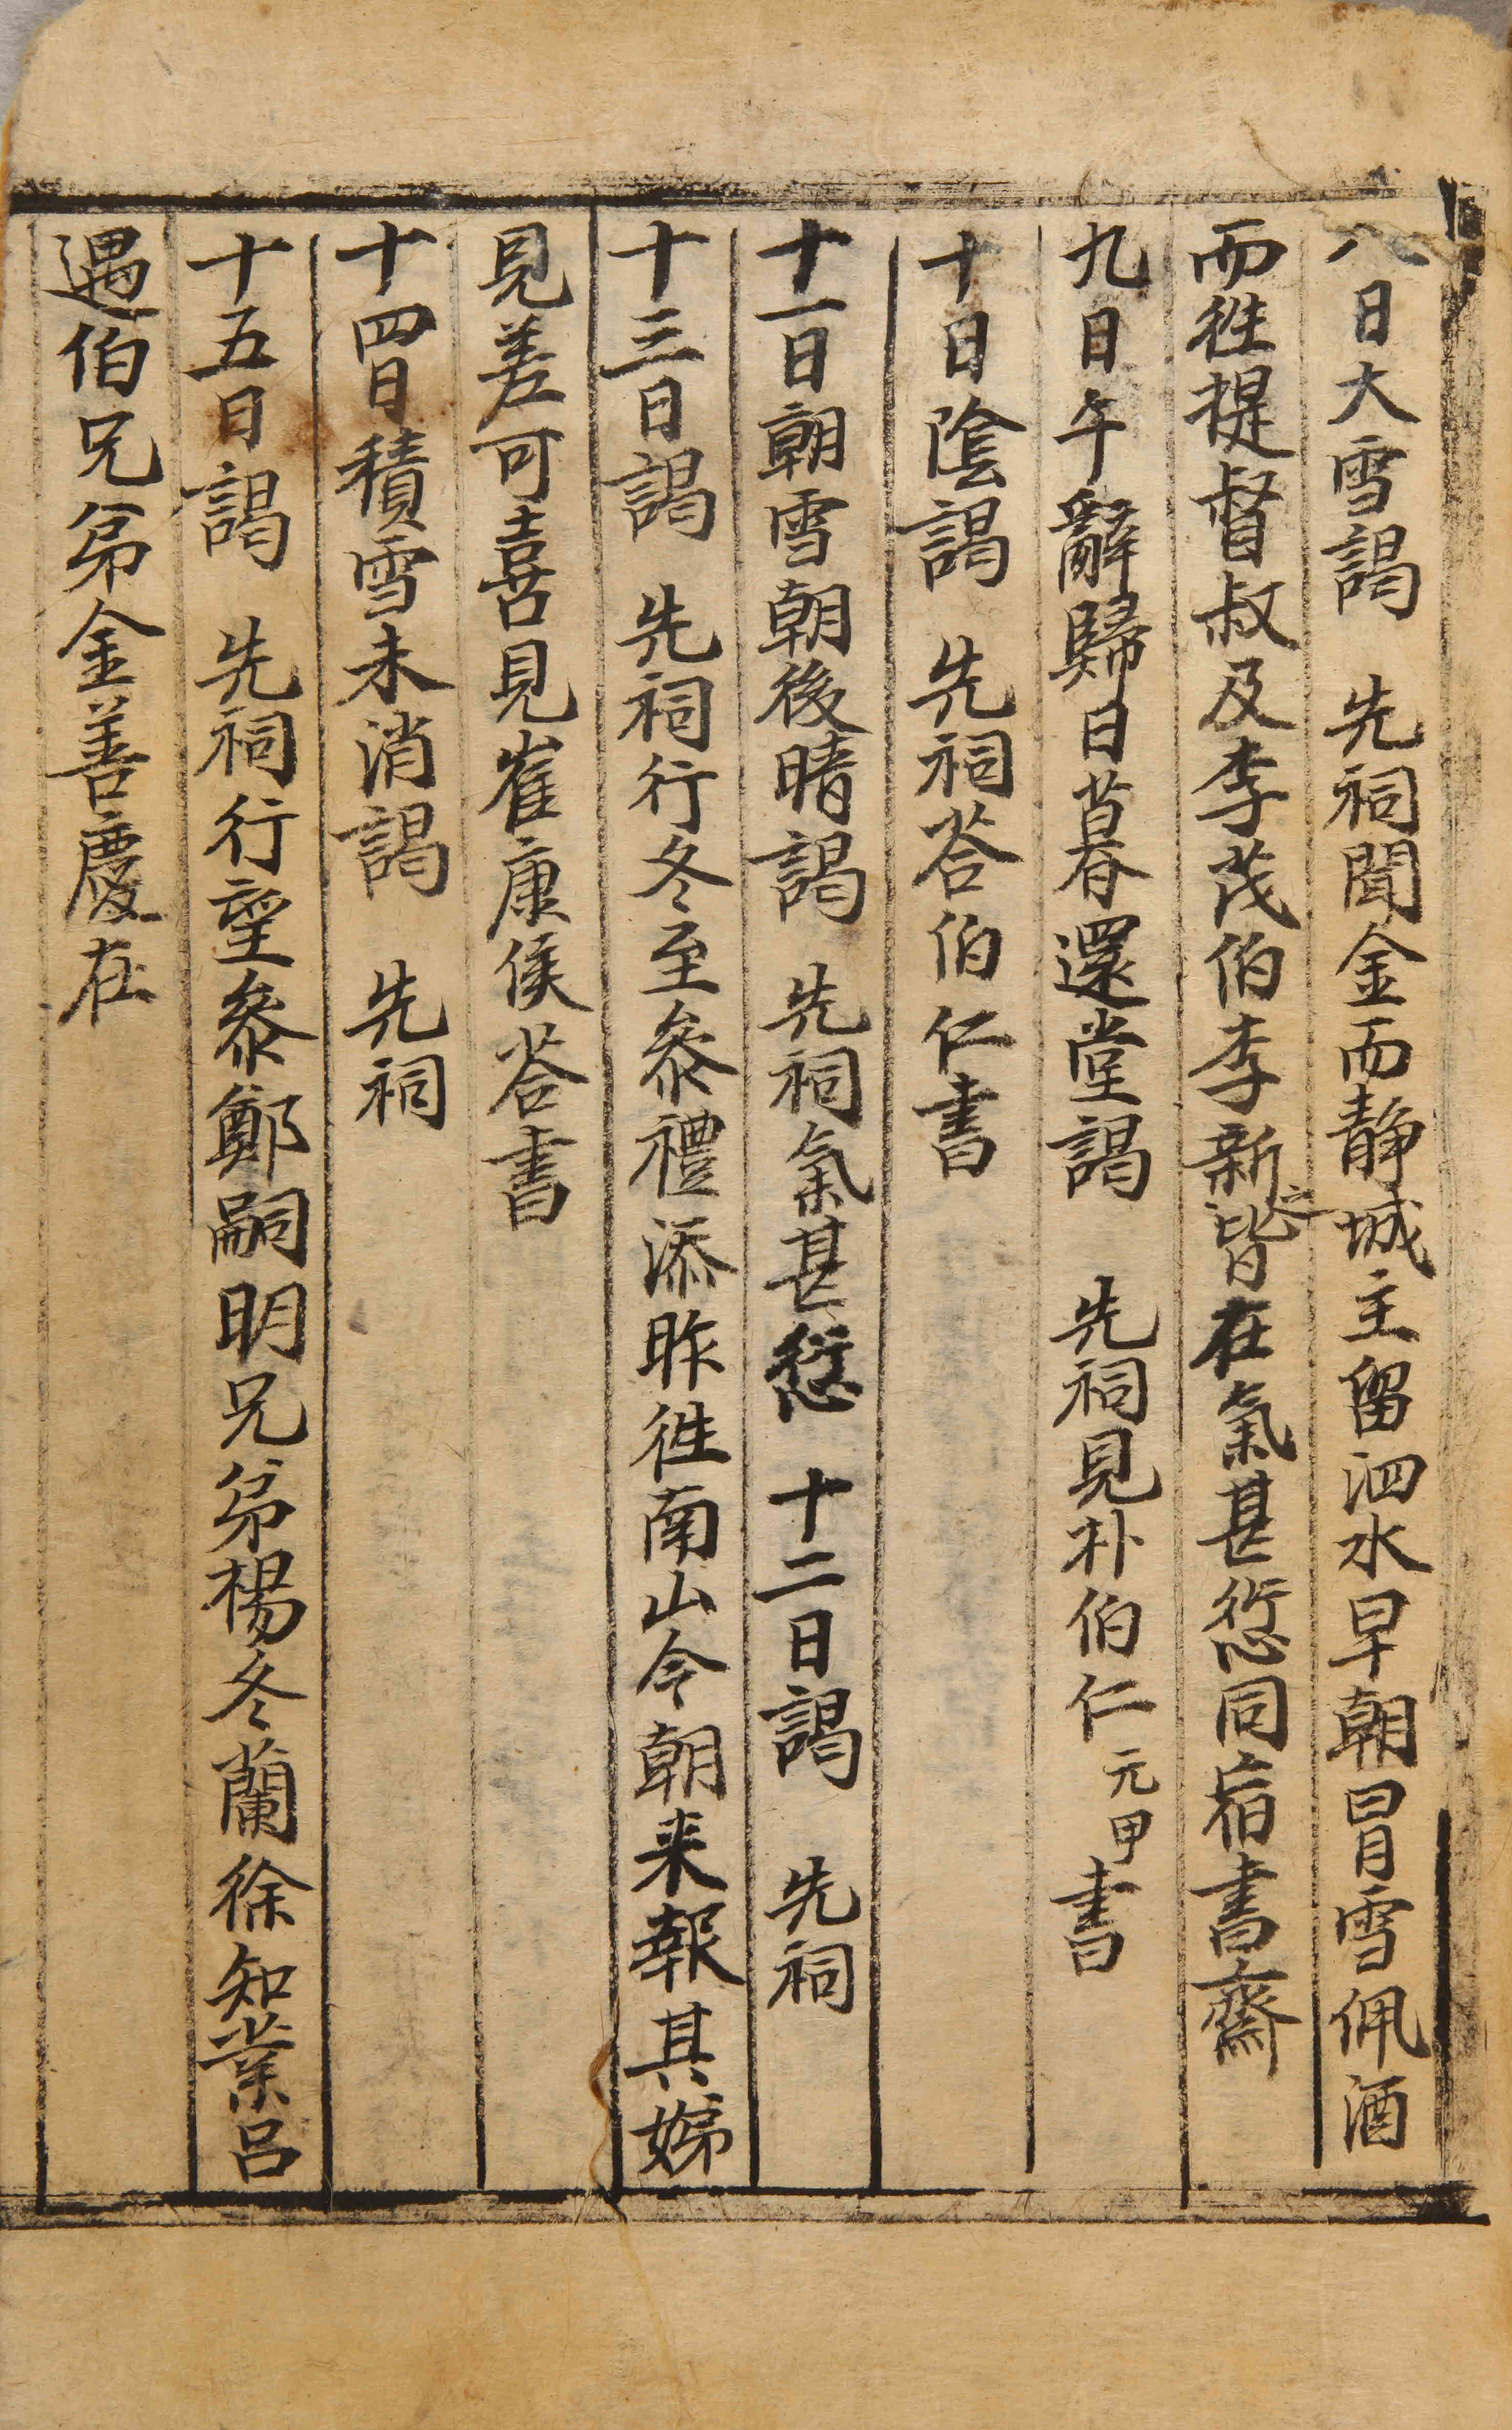 八日大雪謁　先祠聞金而静城主留泗水早朝冒雪佩酒
而徃提督叔及李茂伯李新之皆在氣甚愆同宿書齋
九日午辭歸日暮還堂謁　先祠見朴伯仁元甲書
十日陰謁　先祠答伯仁書
十一日朝雪朝後晴謁　先祠氣甚愆　十二日謁　先祠
十三日謁　先祠行冬至叅禮添昨徃南山今朝来報其娣
見差可喜見崔康侯答書
十四日積雪未消謁　先祠
十五日謁　先祠行望叅鄭嗣明兄弟楊冬蘭徐知業呂
遇伯兄弟金善慶在